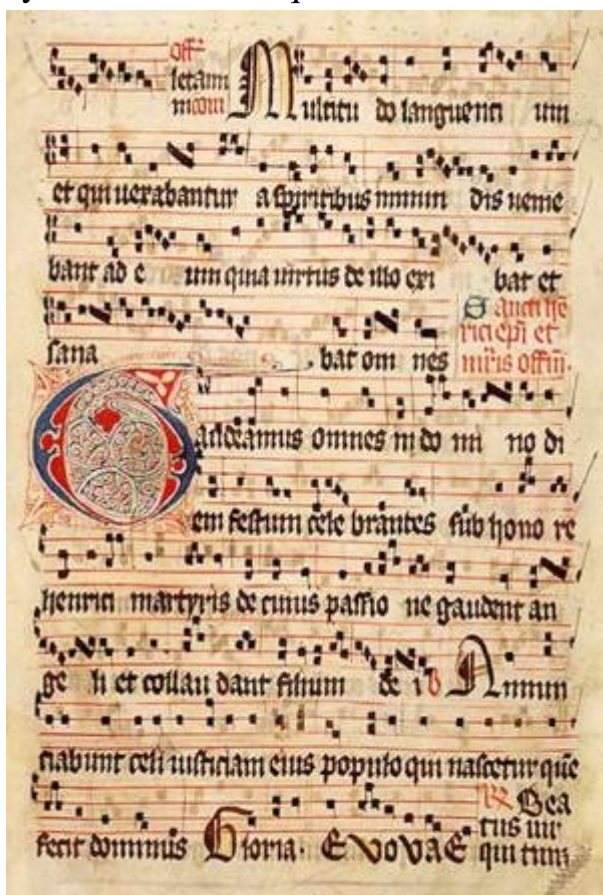 Off
letami
Multitu do languenti um
et qui uexabantur a spiritibus inmun dis ueme
bant ad e um quia uirtus de illo exi bat et
sana bat om nes
Sancti he
rici epi et
mris offm.
Gaudeamus omnes in do mi no di
em festum cele brantes sub hono re
henrici martyris de cuius passio ne gaudent an
ge li et collau dant filium de i Annun
ciabunt celi iusticiam eius populo qui nascetur que
fecit dominus Gloria. EVOVAE
Bea
tus uir
qui tim